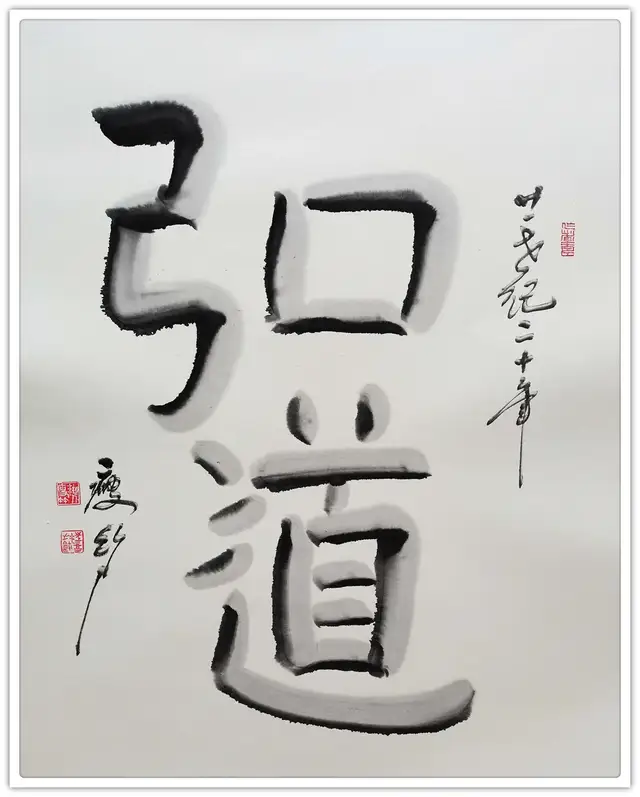 弘道
廿一世纪二十年
瘦